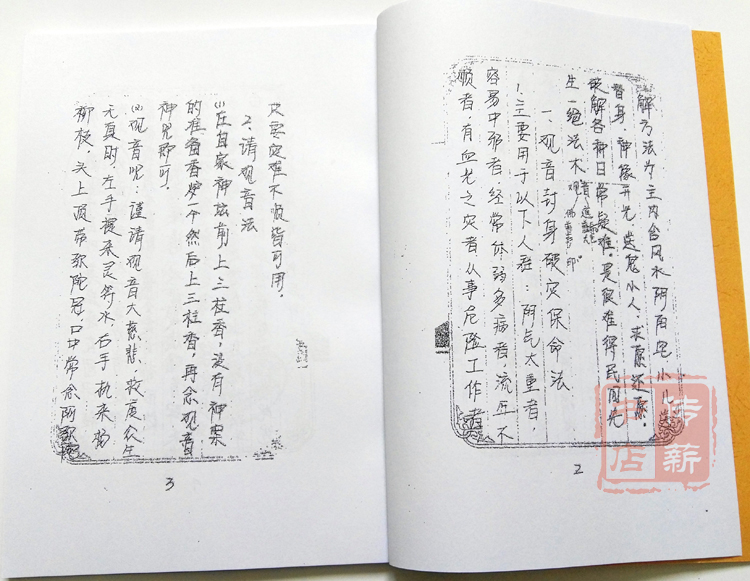 解方法为主内含风水阴阳宅小儿
替身，神像开光，送鬼小人，求愿还愿。
破解各种日常疑难。是很难得民间先
生一绝法术
一、观音封身破灾保命法
1.主要用于以下人群：阴气太重者，
容易中邪者经常体弱多病者，流年不
顺者有血光之灾者从事危险工作者
2
只要灾难不顺皆可用。
2、请观音法
(1)在自家神坛前上三柱香，没有神案
的准备香炉一个然后上三柱香，再念观音
神咒即可。
(2)观音咒：谨请观音大慈悲，救度众生
无真时，左手提来灵符水右手执来杨
柳枝，头上顶带弥陀冠，口中常念阿弥陀
3
传薪
书店